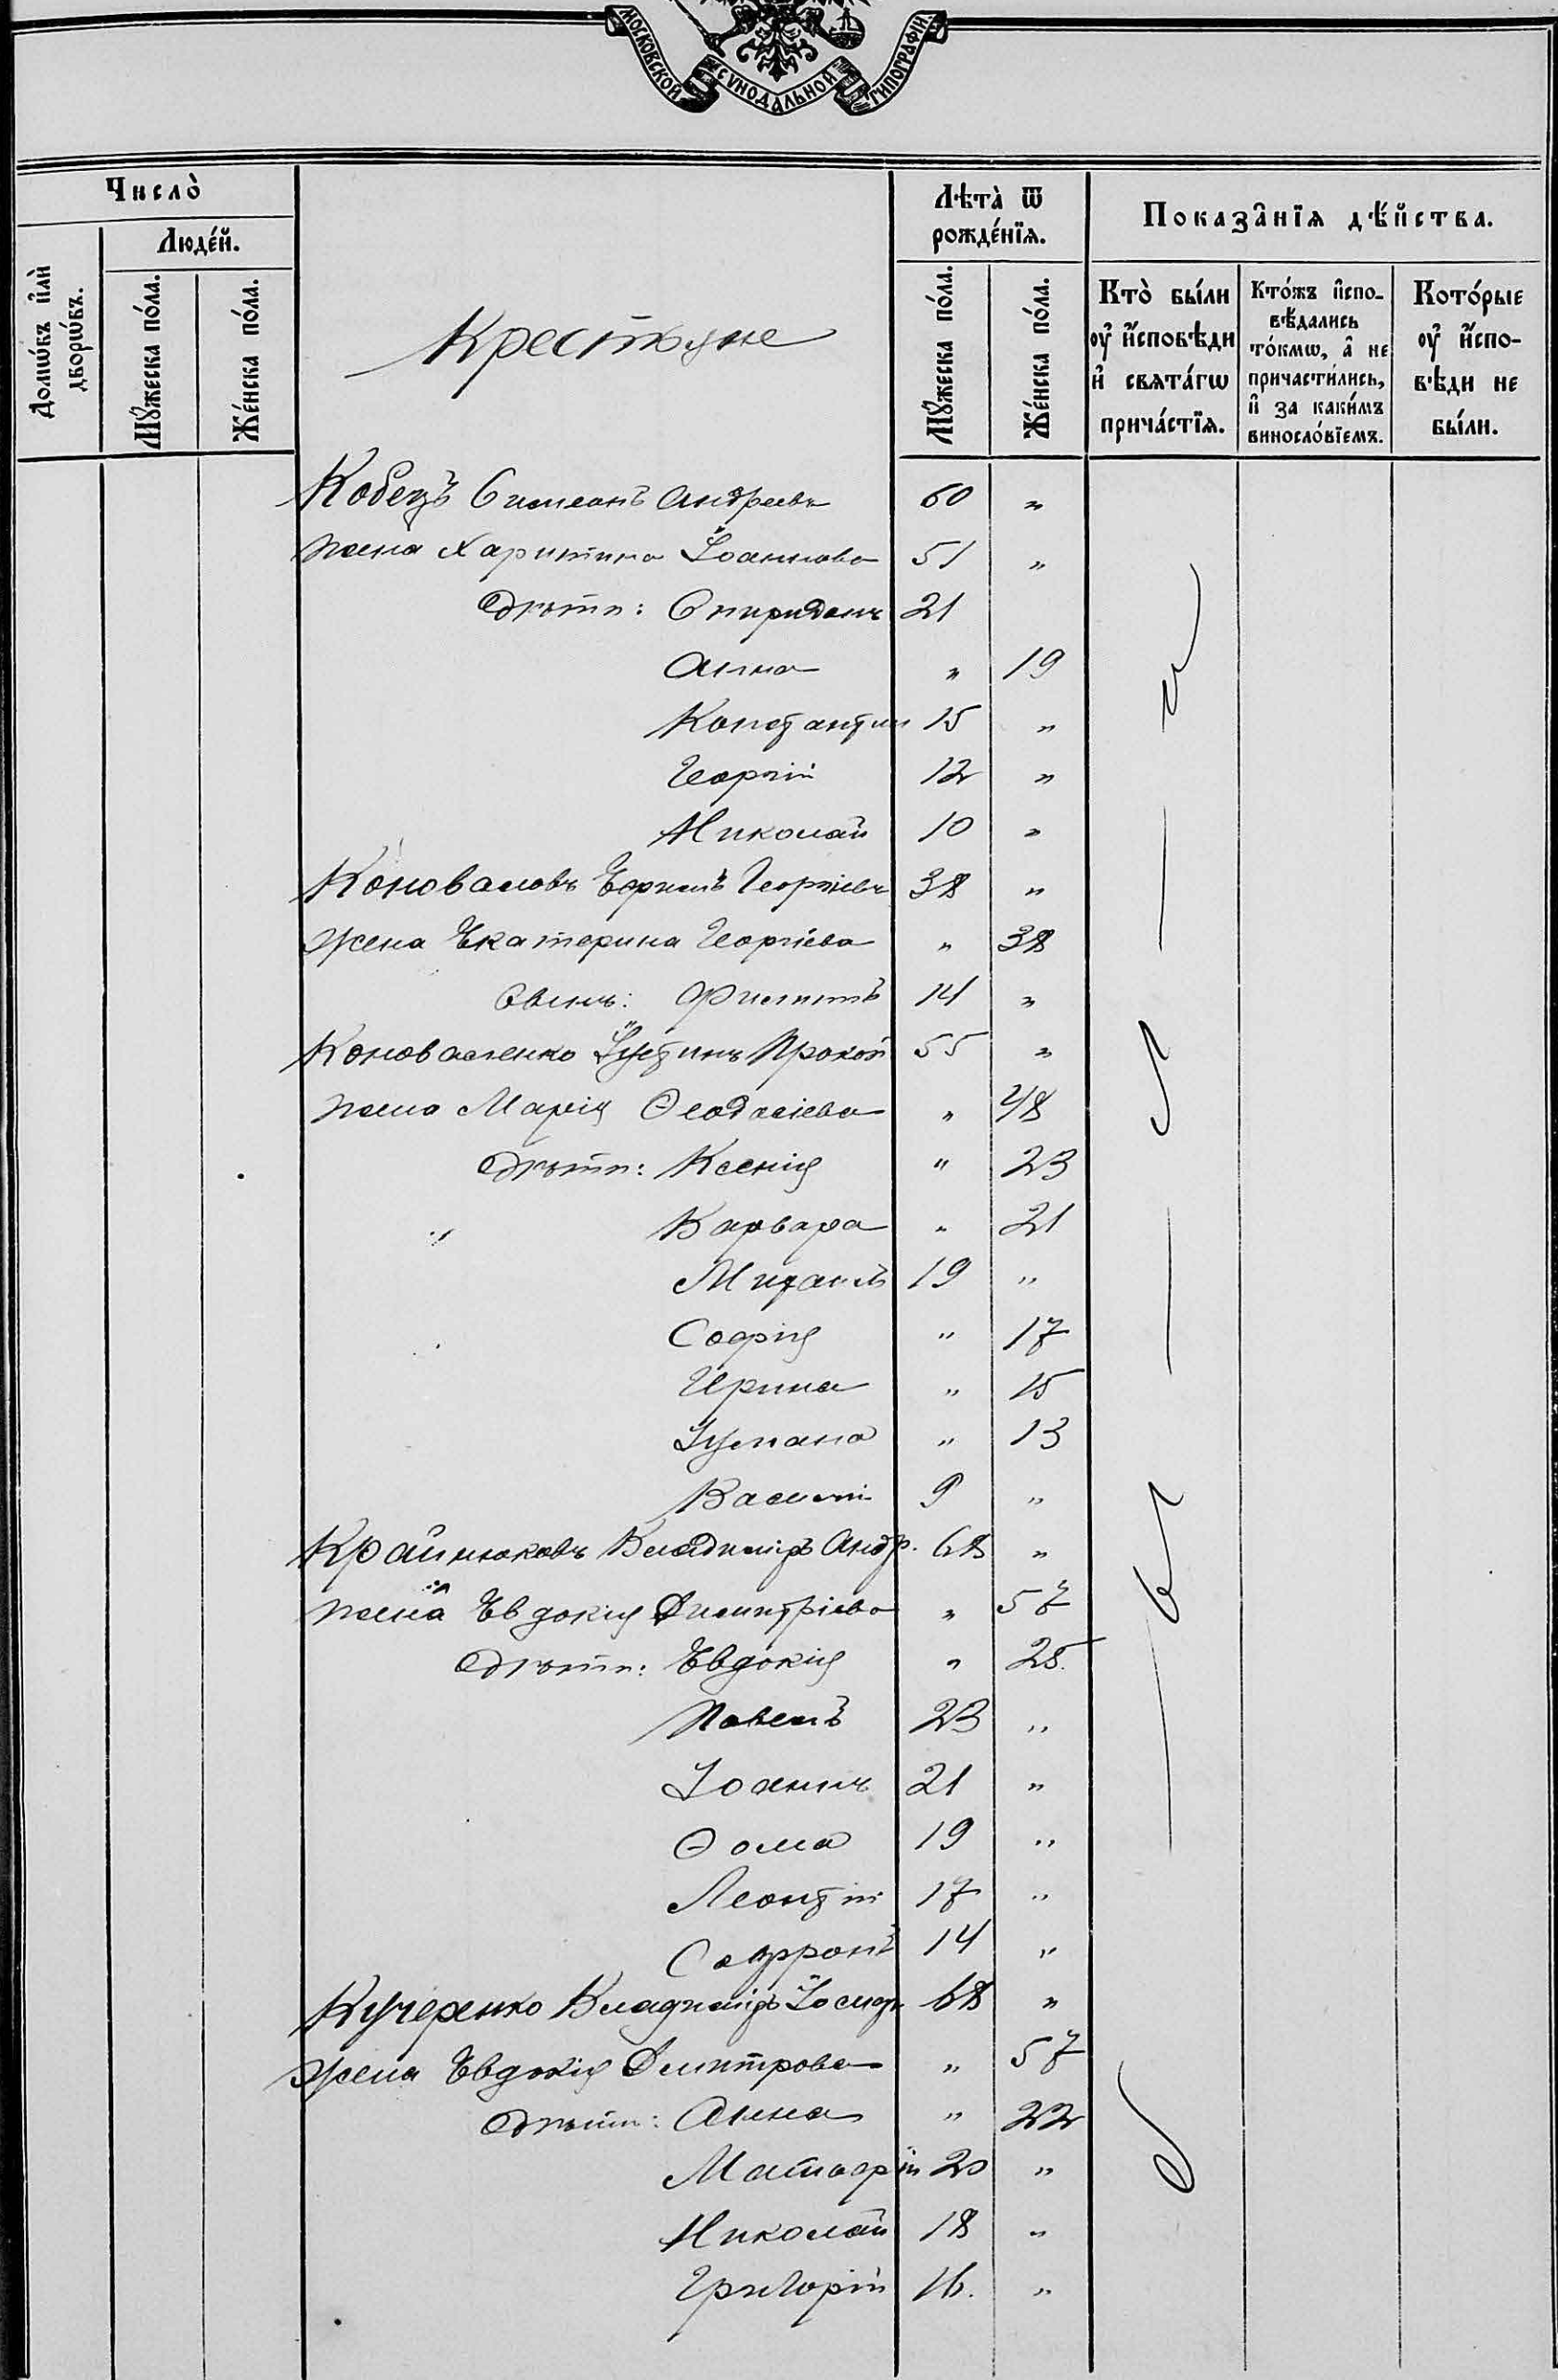 МОСКОВСКОЙ СѴНОДАЛЬНОЙ ТИПОГРАФІИ
Число̀
Люде́й.
Домѡ́въ и҆лѝ дворѡ́въ.
Мꙋ́жеска по́ла.
Же́нска по́ла.
Крестьяне
Лѣта̀ ѿ рожде́нїѧ.
Мꙋ́жеска по́ла.
Же́нска по́ла.
Показа̑нїѧ дѣ́йства.
Кто̀ бы́ли оу҆ и҆́сповѣди и҆ свѧта́гѡ прича́стїѧ.
Кто́жъ и҆спо-вѣ́дались то́кмѡ, а҆ не причасти́лись, и҆ за каки́мъ винослѡ́вїемъ.
Кото́рые оу҆ и҆́спо-вѣди не бы́ли.
Кобецъ Симеонъ Андреевъ 60 „
жена Харитина Іоаннова 51 „
Дѣти: Спиридонъ 21
Анна „ 19
Константин 15 „
Георгій 12 „
Николай 10 „
Коноваловъ Ефремъ Георгіевъ 38 „
жена Екатерина Георгіева „ 38
Сынъ: Филиппъ 14 „
Коноваленко Іустинъ Прокоп 55 „
жена Марія Ѳеодосіева „ 48
Дѣти: Ксенія „ 23
Варвара „ 21
Михаилъ 19 „
Софія „ 17
Ирина „ 15
Іуліана „ 13
Василій 9 „
Крайнюковъ Владиміръ Андр. 68 „
жена Евдокія Димитріева „ 57
Дѣти: Евдокія „ 25.
Павелъ 23 „
Іоаннъ 21 „
Ѳома 19 „
Леонтій 17 „
Софронъ 14 „
Кучеренко Владиміръ Іосиф 68 „
жена Евдокія Дмитрова „ 57
Дѣти: Анна „ 22
Матѳей 20 „
Николай 18 „
Григорій 16. „